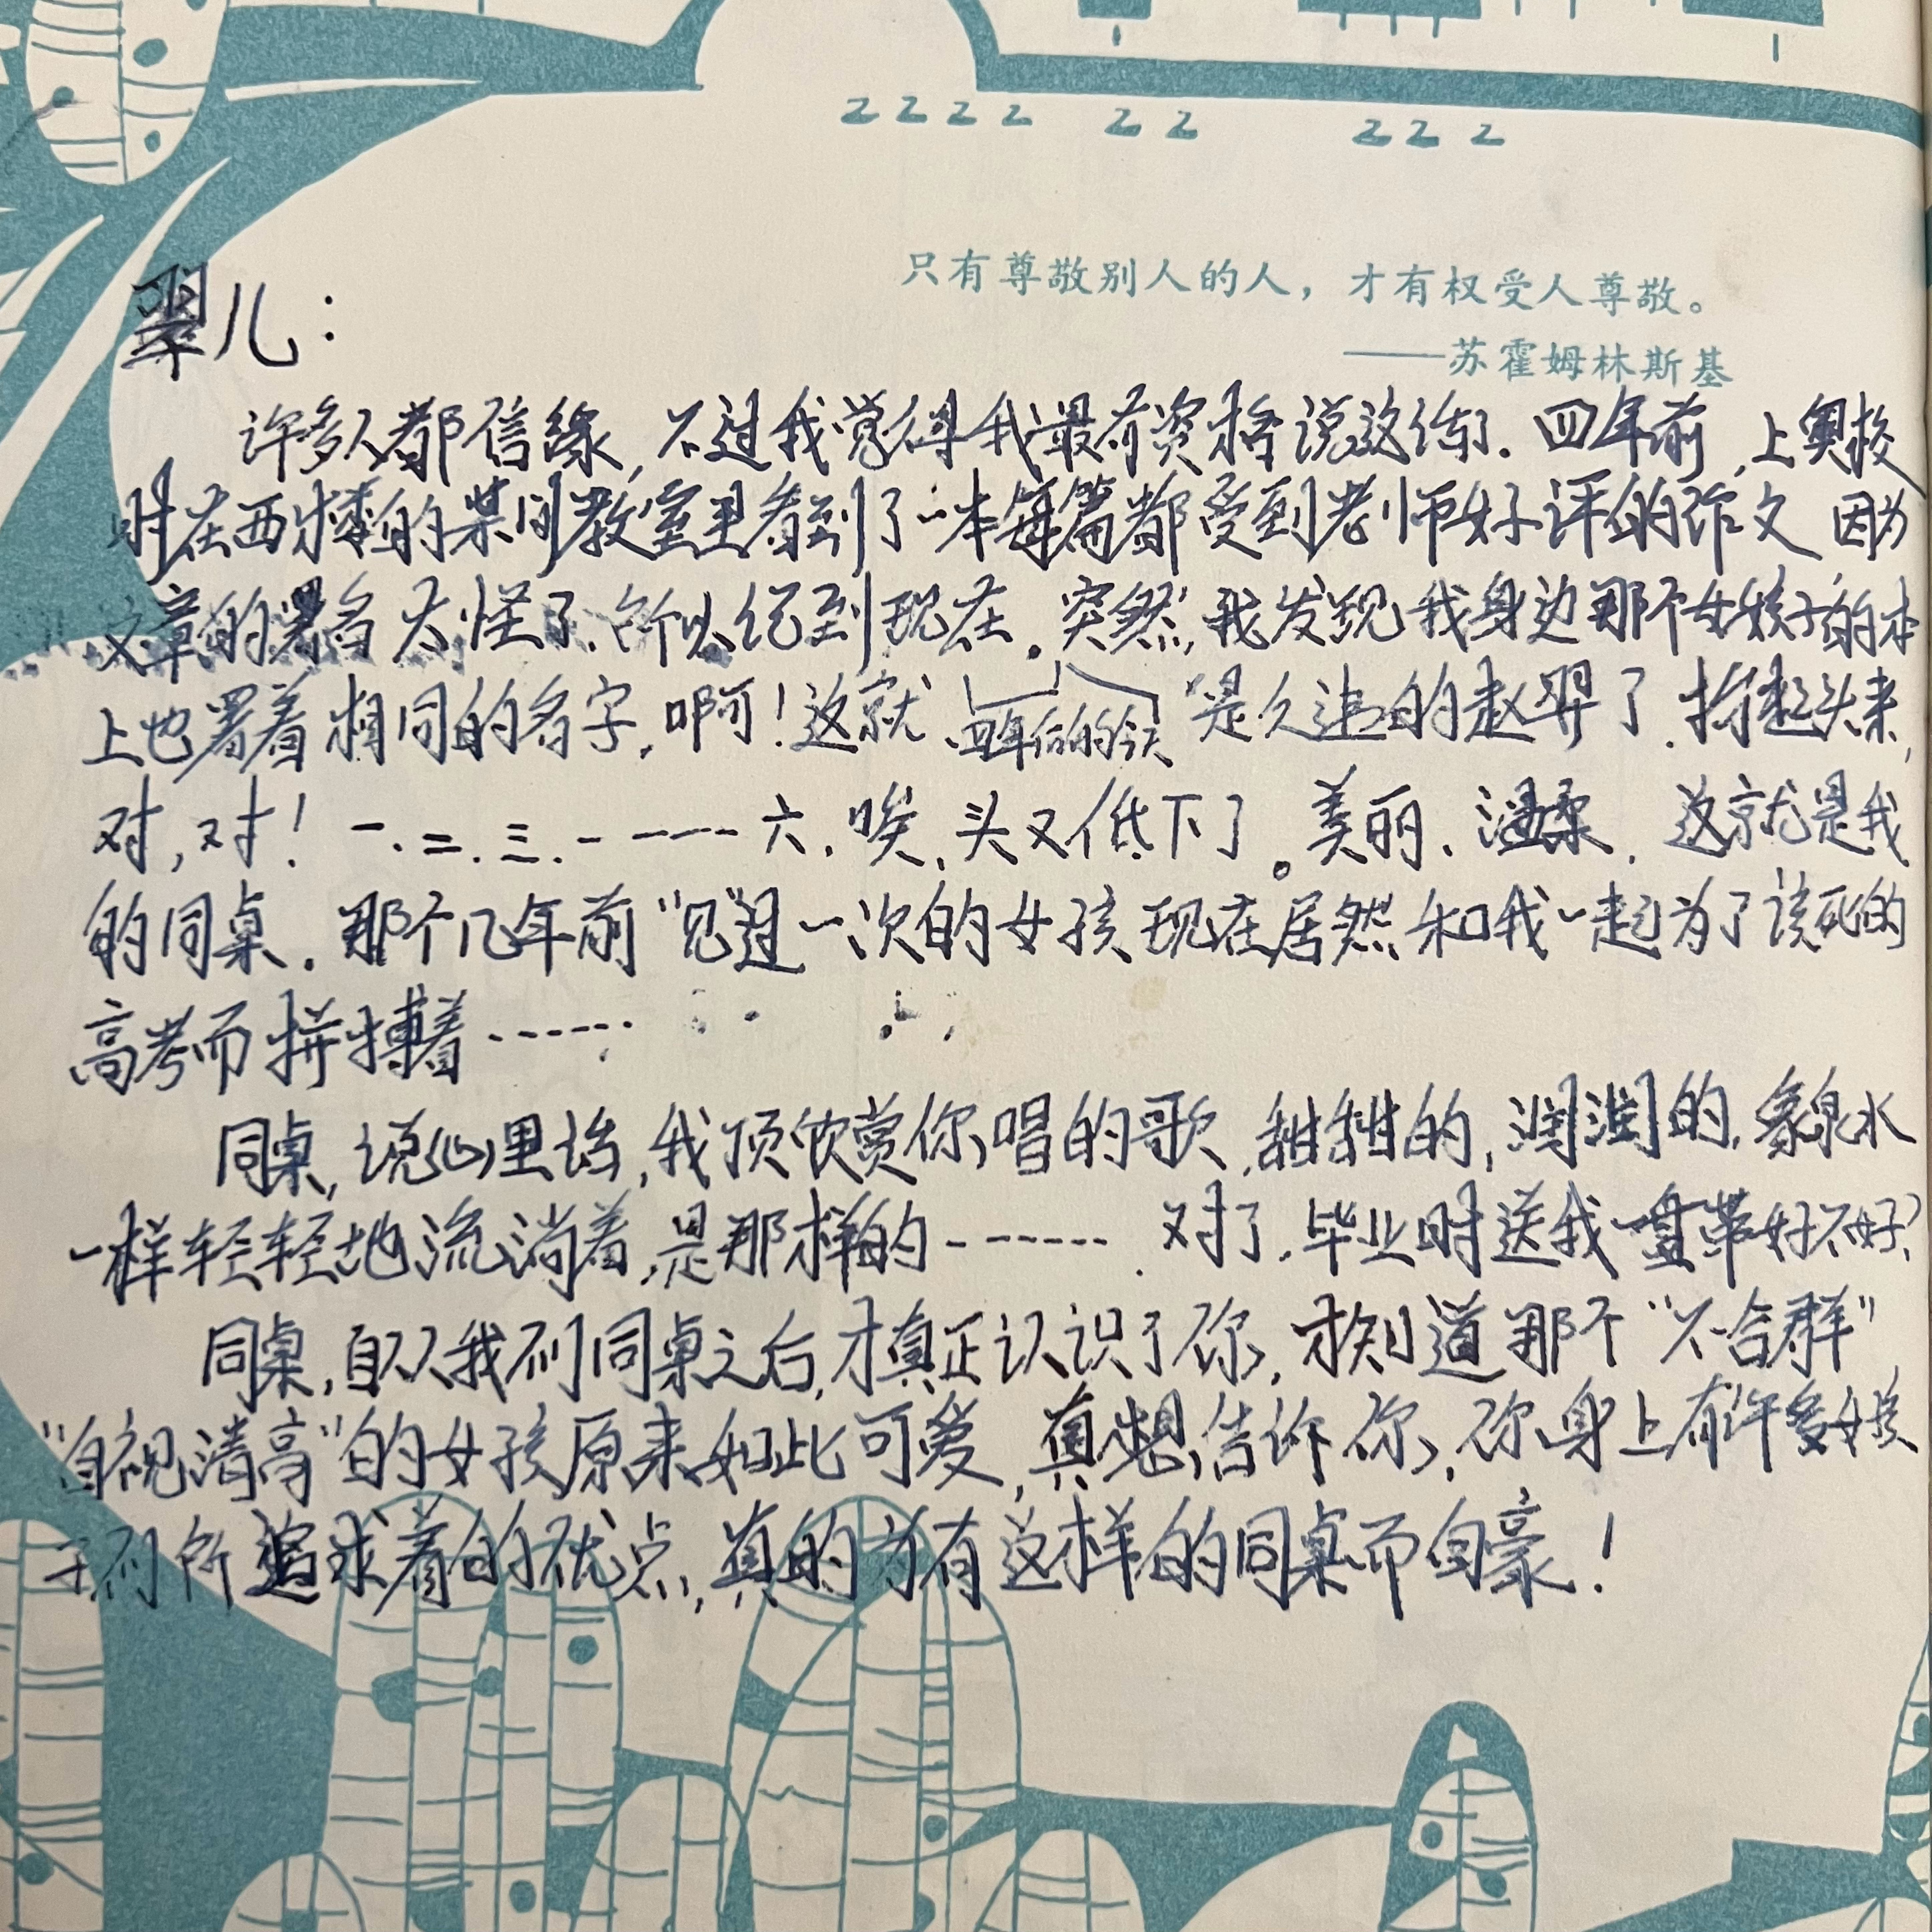 只有尊敬别人的人，才有权受人尊敬。
——苏霍姆林斯基
翠儿：
许多人都信缘，不过我觉得我最有资格说这话了．四年前，上奥校
时在西楼的某间教室里看到了一本每篇都受到老师好评的作文 因为
文章的署名太怪了、所以纪到现在。突然，我发现我身边那个女孩子的本
上也署着相同的名字，啊！这就四年后的今天是久违的赵翠了．抬起头来，
对，对！一．二．三．------六．唉、头又低下了。美丽、温柔．这就是我
的同桌．那个几年前“见”过一次的女孩现在居然和我一起为了该死的
高考而拼搏着……
同桌，说心里话，我顶欣赏你唱的歌，甜甜的，润润的，象泉水
一样轻轻地流淌着，是那样的-------．对了，毕业时送我一盘带好不好？
同桌，自从我们同桌之后，才真正认识了你，才知道那个“不合群”，
“自视清高”的女孩原来如此可爱，真想告诉你，你身上有许多女孩
子们所追求着的优点，真的为有这样的同桌而自豪！